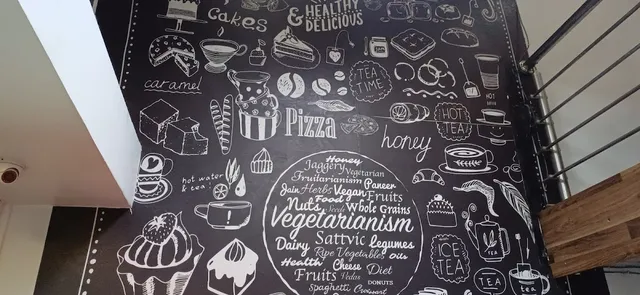 Cakes
& HEALTHY
DELICIOUS
caramel
TEA
TIME
HOT
Pizza
honey
HOT
TEA
hot water
& tea
Honey
Jaggery Vegetarian
Fruitarianism
Jain Herbs Vegan Paneer
Food Fruits
Nuts Seeds Whole Grains
Vegetarianism
Sattvic
Dairy Legumes
Ripe Vegetables Oils
Health Cheese
Fruits Vedas Diet
DONUTS
Spaghetti Croissant
ICE
TEA
TEA